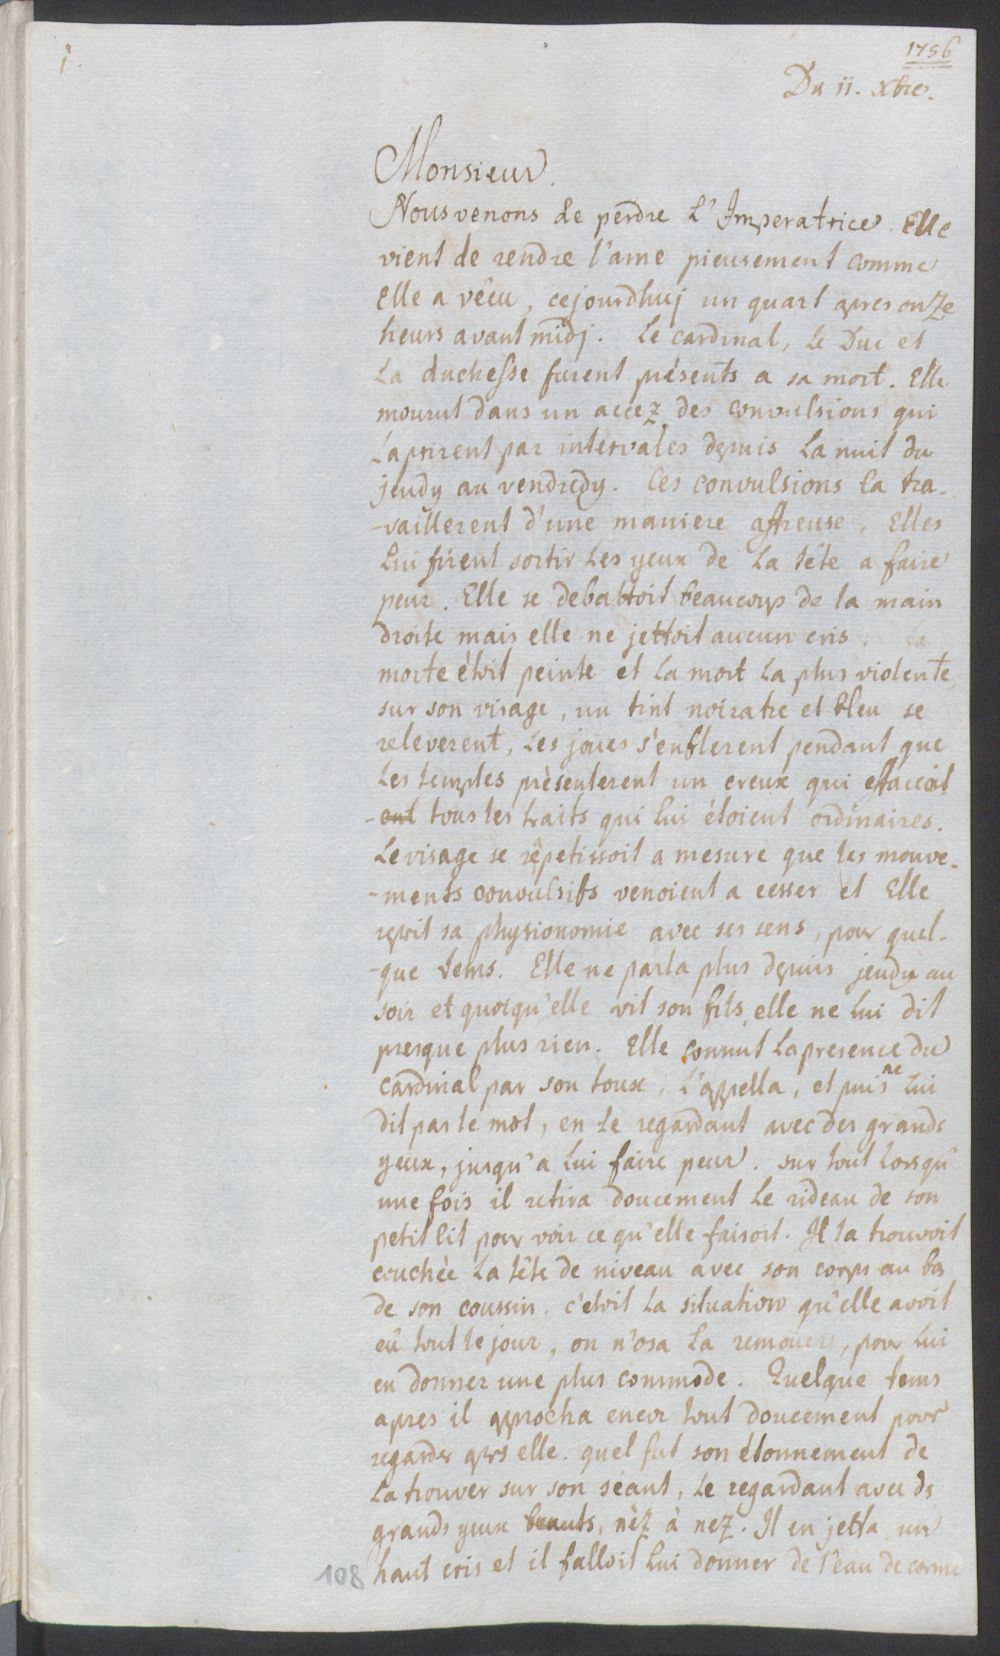 1.
1756
Du 11. Xbre.
Monsieur.
Nous venons de perdre L'Imperatrice. Elle
vient de rendre l'ame pieusement comme
elle a vêcu, cejourdhuj un quart apres onze
heurs avant midj. Le cardinal, Le Duc et
La duchesse furent présents a sa mort. Elle
mourut dans un accez des convulsions qui
La prirent par intervales depuis La nuit du
jeudy au vendredy. Ces convulsions la tra-
-vaillerent d'une maniere affreuse. Elles
Lui firent sortir Les yeux de La tête a faire
peur. Elle se debattoit beaucoup de la main
droite mais elle ne jettoit aucun cris. La
morte étoit peinte et La mort La plus violente,
sur son visage, un tint noiratre et bleu se
releverent, Les joues s'enflerent pendant que
Les temples présenterent un creux qui effacoit
-ent tous les traits qui lui étoient ordinaires.
Le visage se rapetissoit a mesure que les mouve-
-ments convulsifs venoient a cesser et Elle
repvit sa physionomie avec ses sens, pour quel-
-que tems. Elle ne parla plus depuis jeudy au
soir et quoiqu'elle vit son fils, elle ne lui dit
presque plus rien. Elle connut La presence du
cardinal par son toux, L'appella, et puis ne Lui
dit pas le mot, en Le regardant avec des grands
yeux, jusqu'a Lui faire peur. sur tout Lorsqu'
une fois il retira doucement Le rideau de son
petit lit pour voir ce qu'elle faisoit. Il la trouvoit
couchée La tête de niveau avec son corps au bas
de son coussin. c'etoit La situation qu'elle avoit
eû tout le jour, on n'osa La remouer, pour Lui
en donner une plus commode. Quelque tems
apres il approcha encor tout doucement pour
regarder apres elle. quel fut son étonnement de
La trouver sur son séant, Le regardant avec ds
grands yeux nêz à nez. Il en jetta un
haut cris et il falloit Lui donner de l'eau de carme
108